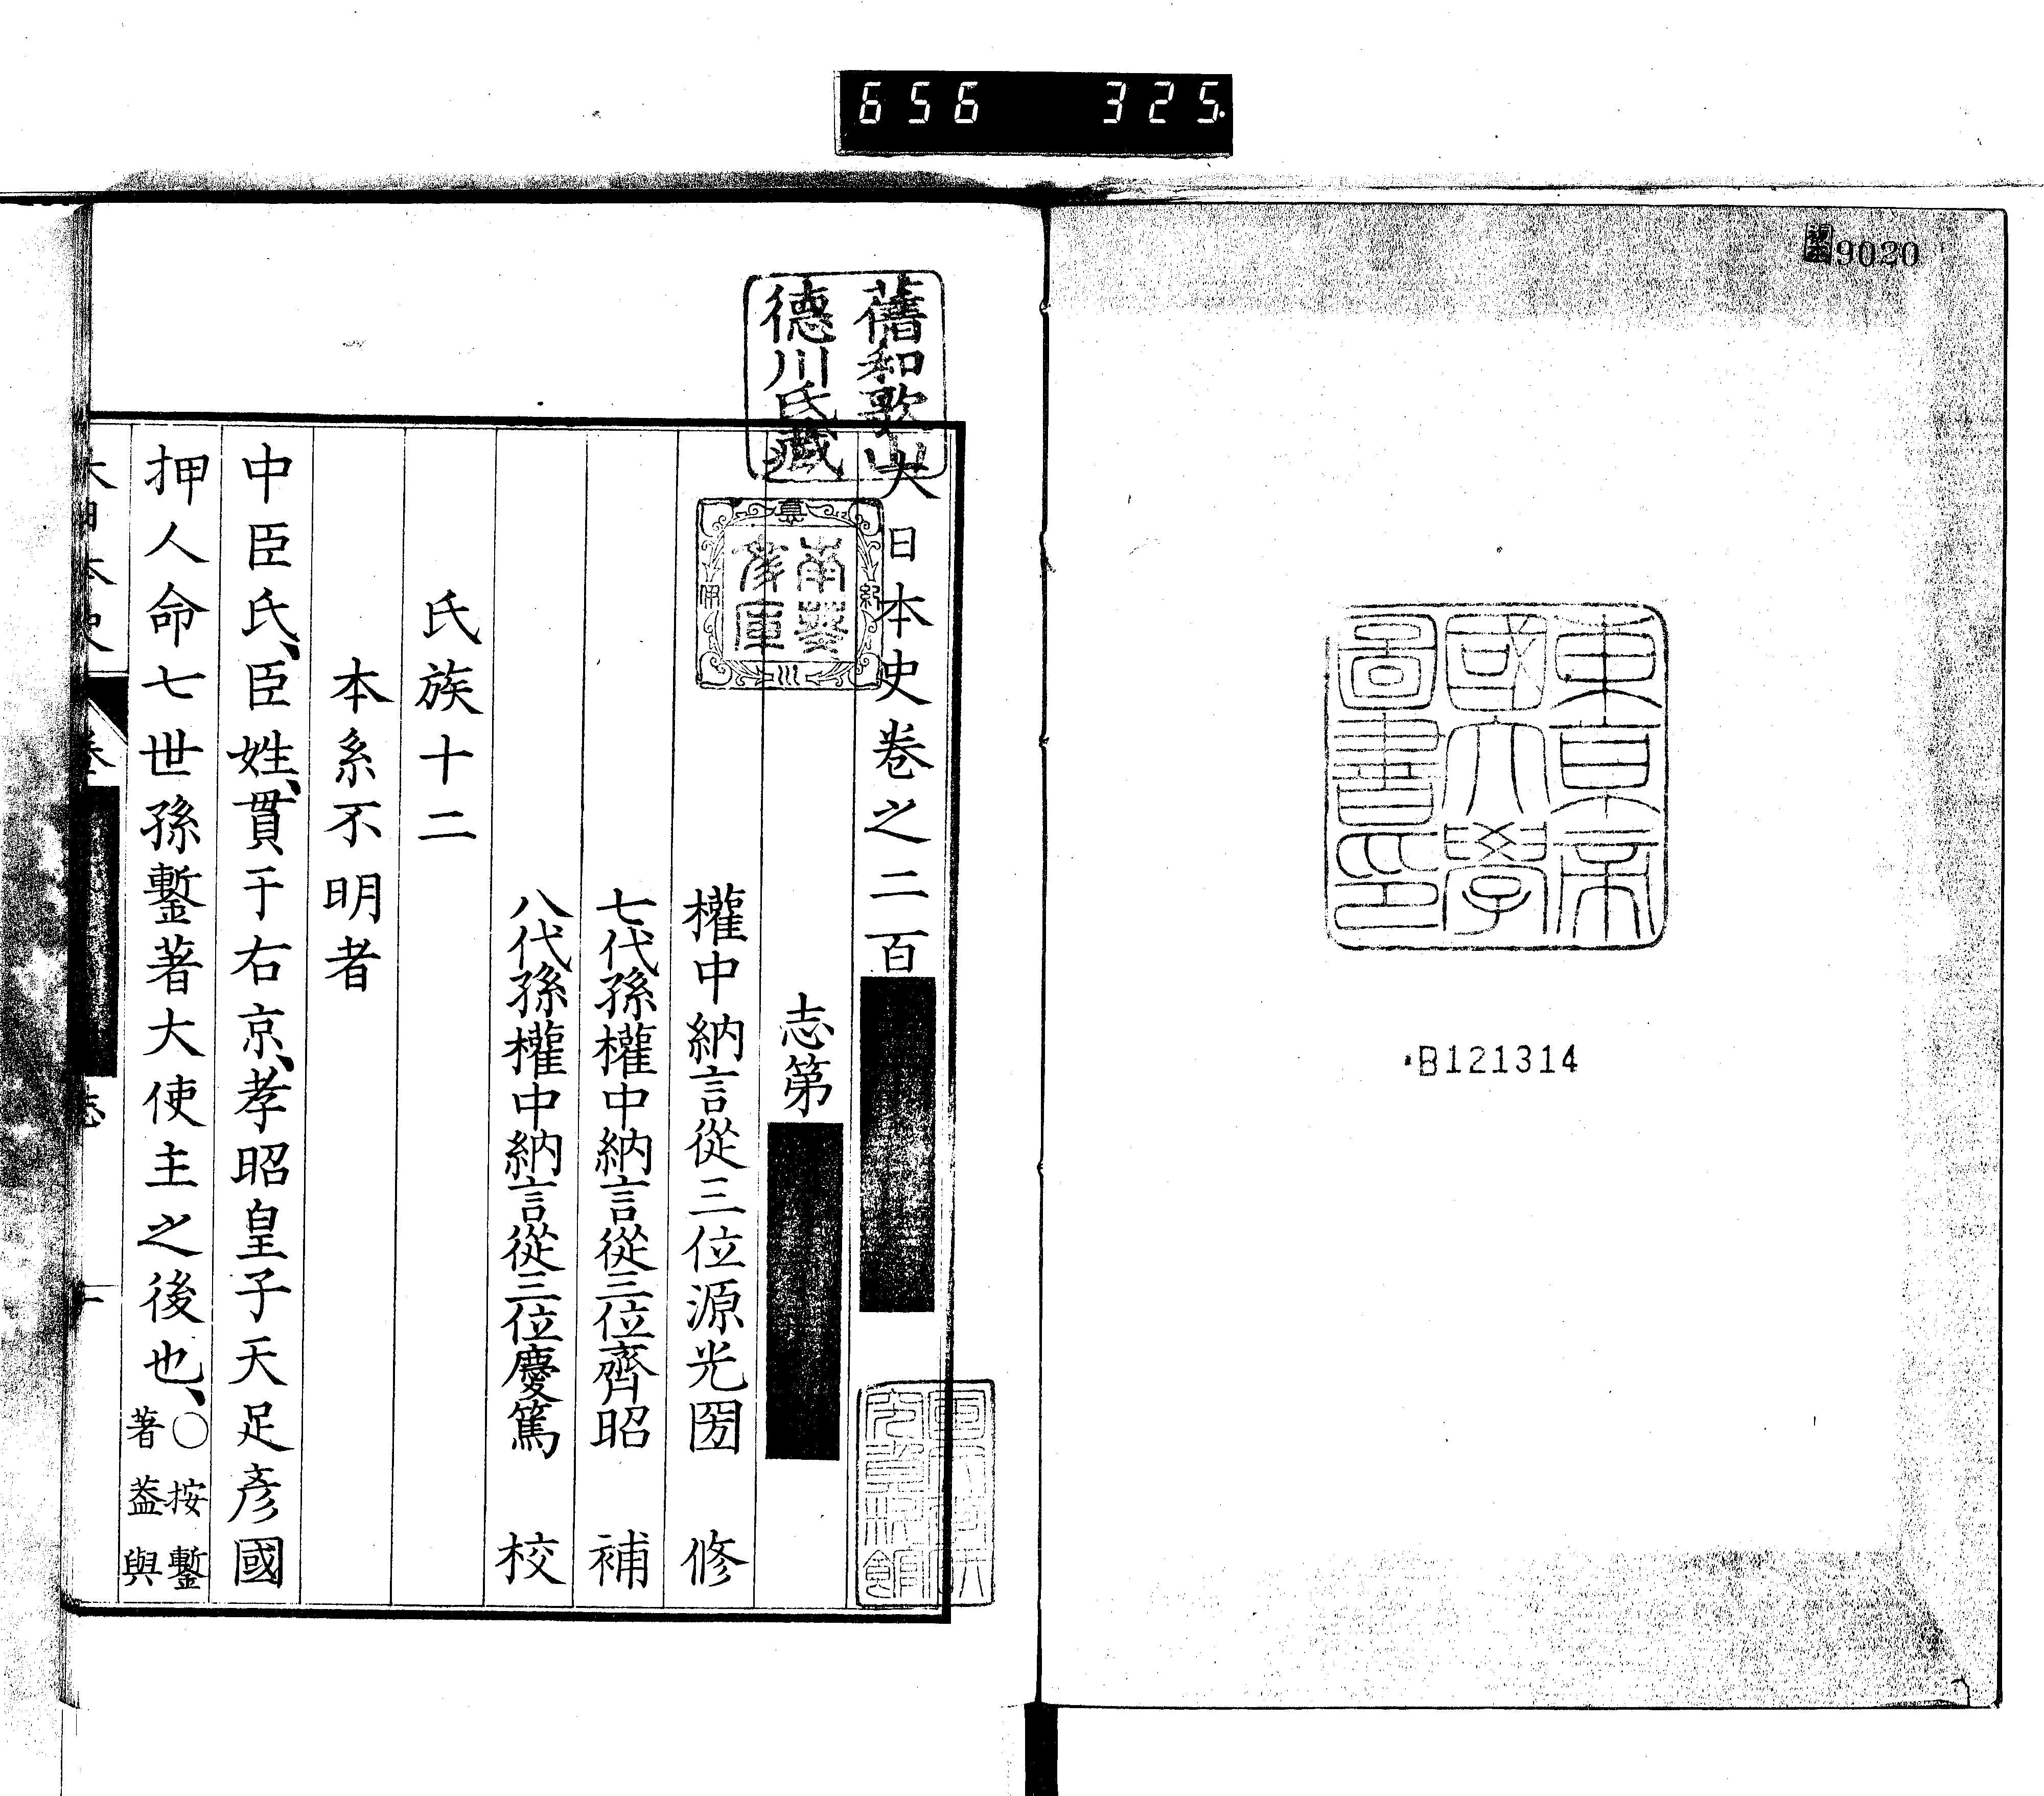 656 325
9020
東京帝
國大學
圖書印
B121314
舊和歌山
德川氏藏
南葵
文庫
大日本史卷之二百
志第
權中納言從三位源光圀 修
七代孫權中納言從三位齊昭 補
八代孫權中納言從三位慶篤 校
氏族十二
本系不明者
中臣氏、臣姓、貫于右京、孝昭皇子天足彥國
押人命七世孫鏨著大使主之後也、○按鏨
著蓋與
大日本史
卷
志